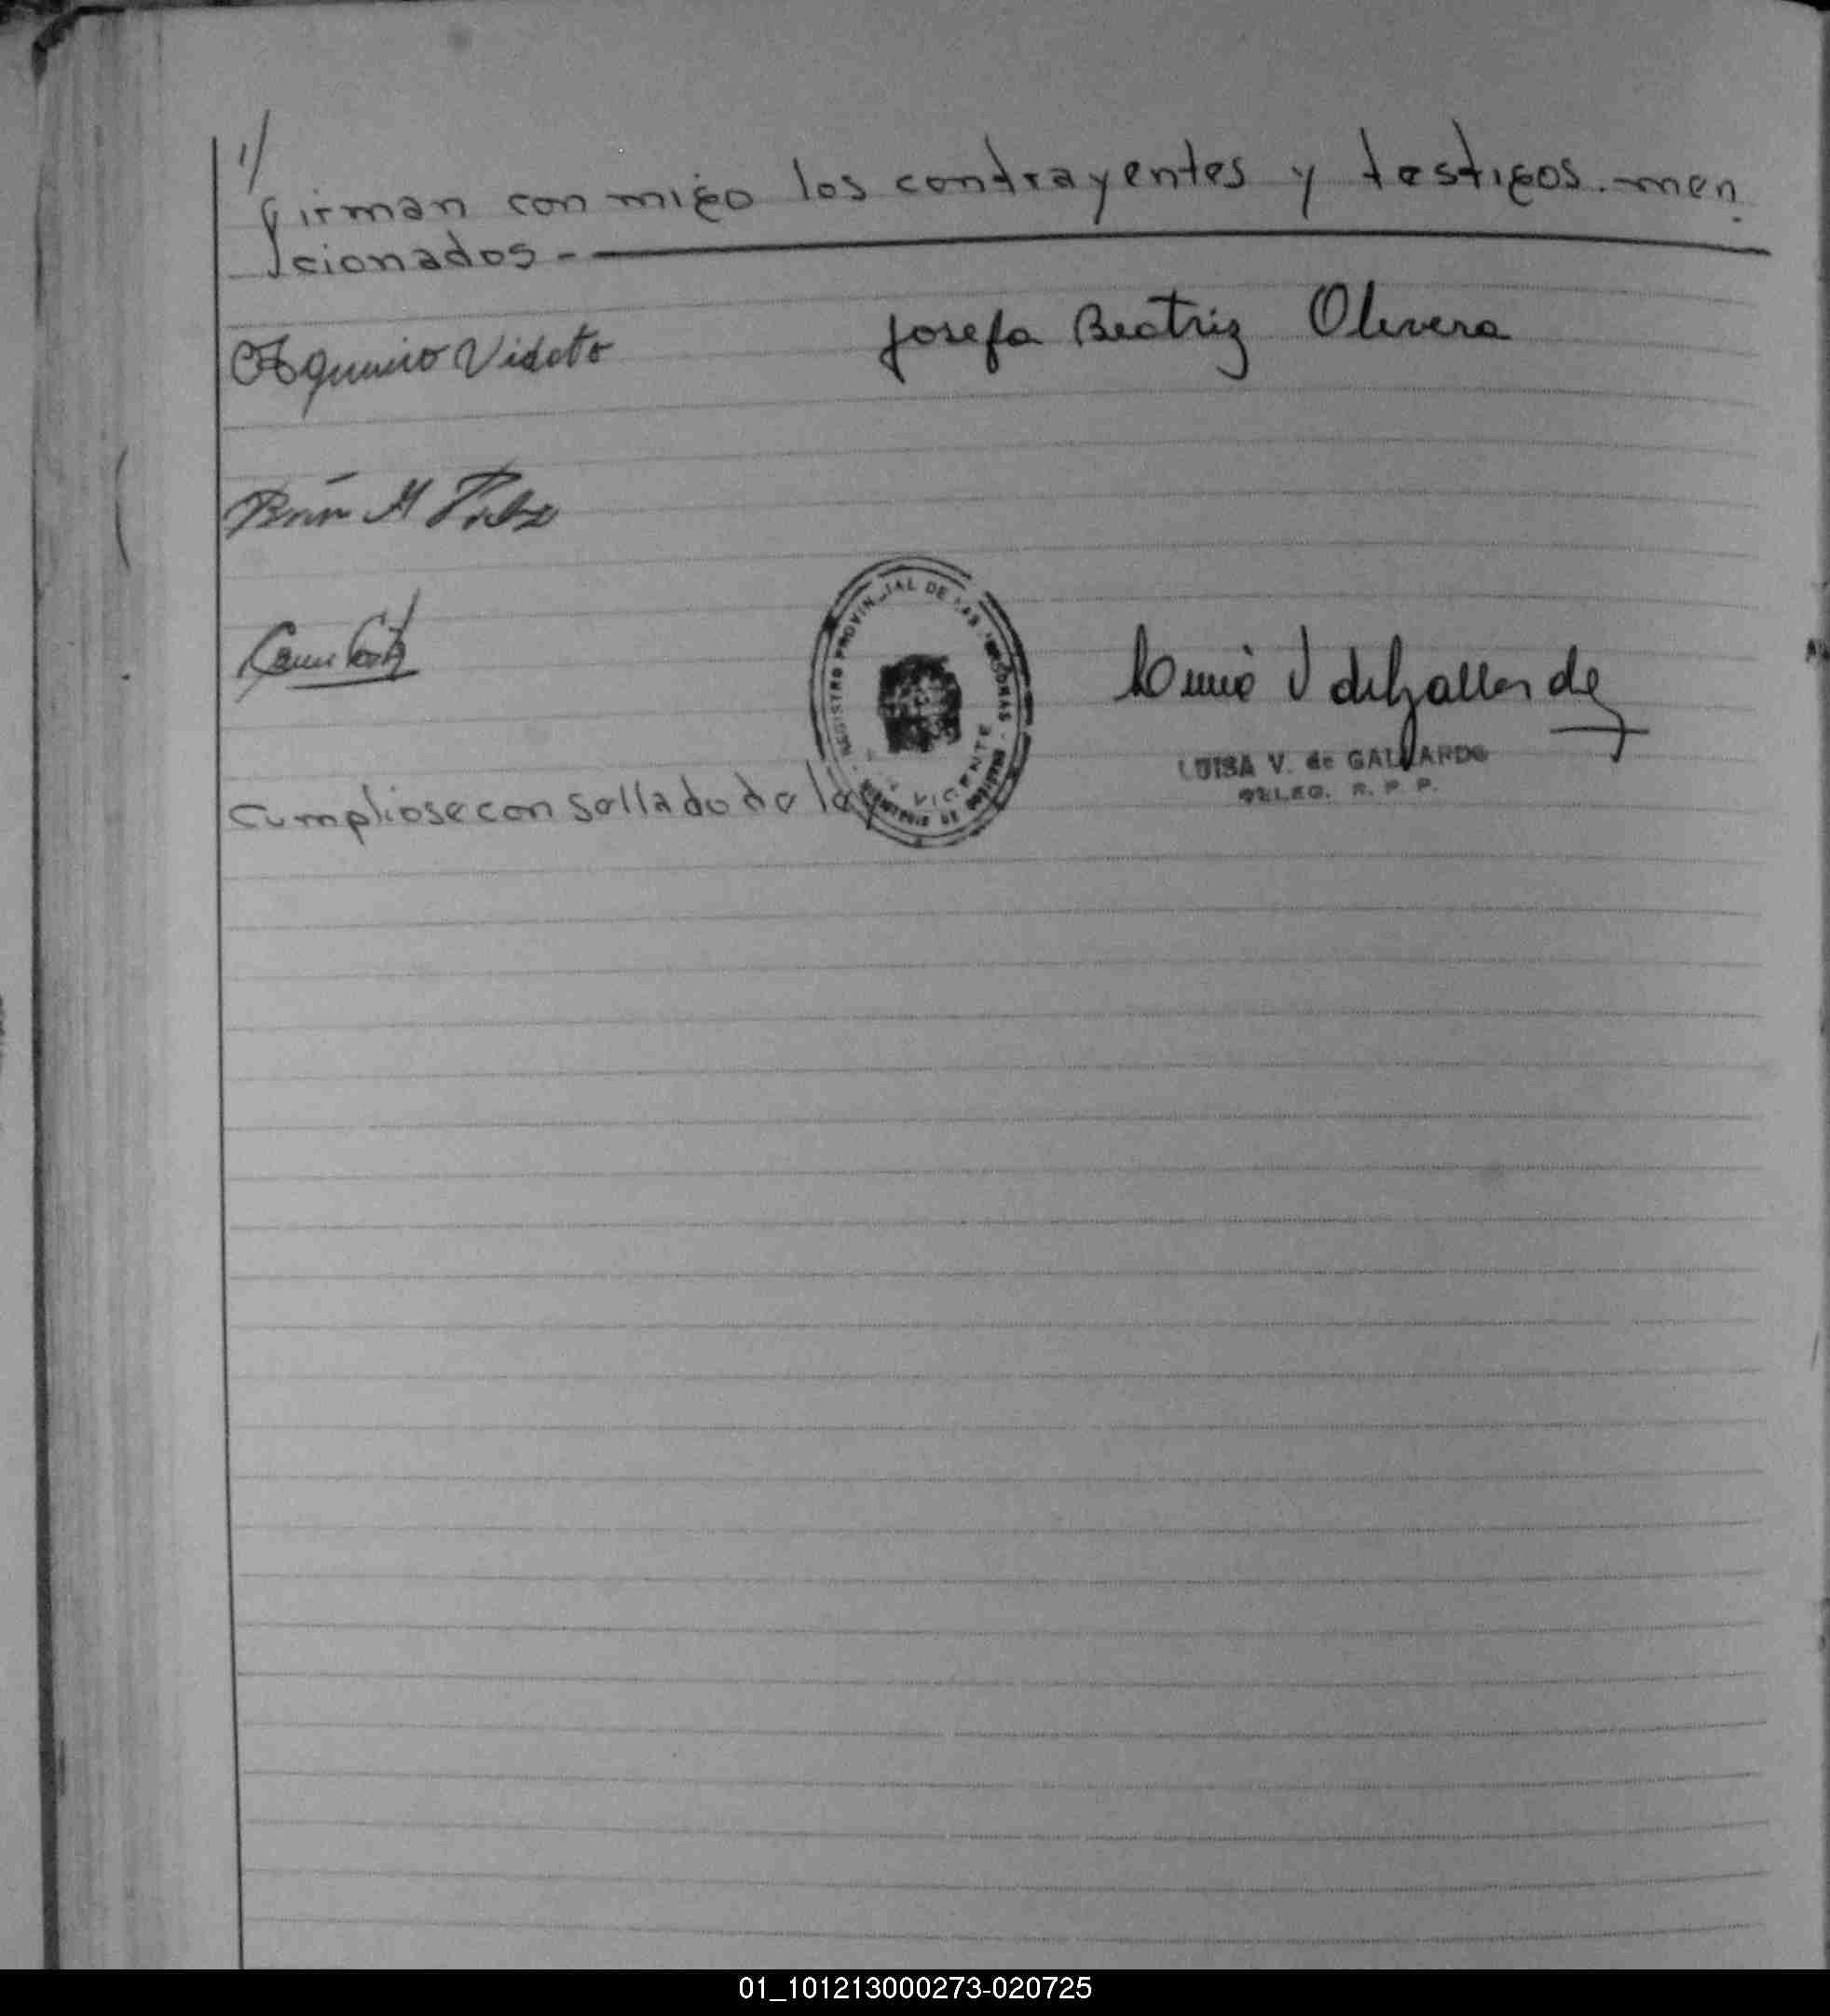 1/
firman con migo los contrayentes y testigos.-men
cionados.-
Videto
Josefa Beatriz Olivera
REGISTRO PROVINCIAL DE LAS PERSONAS
VICENTE
LUISA V. de GALLARDO
DELEG. R. P. P.
Cumpliose con sellado de ley
01_101213000273-020725